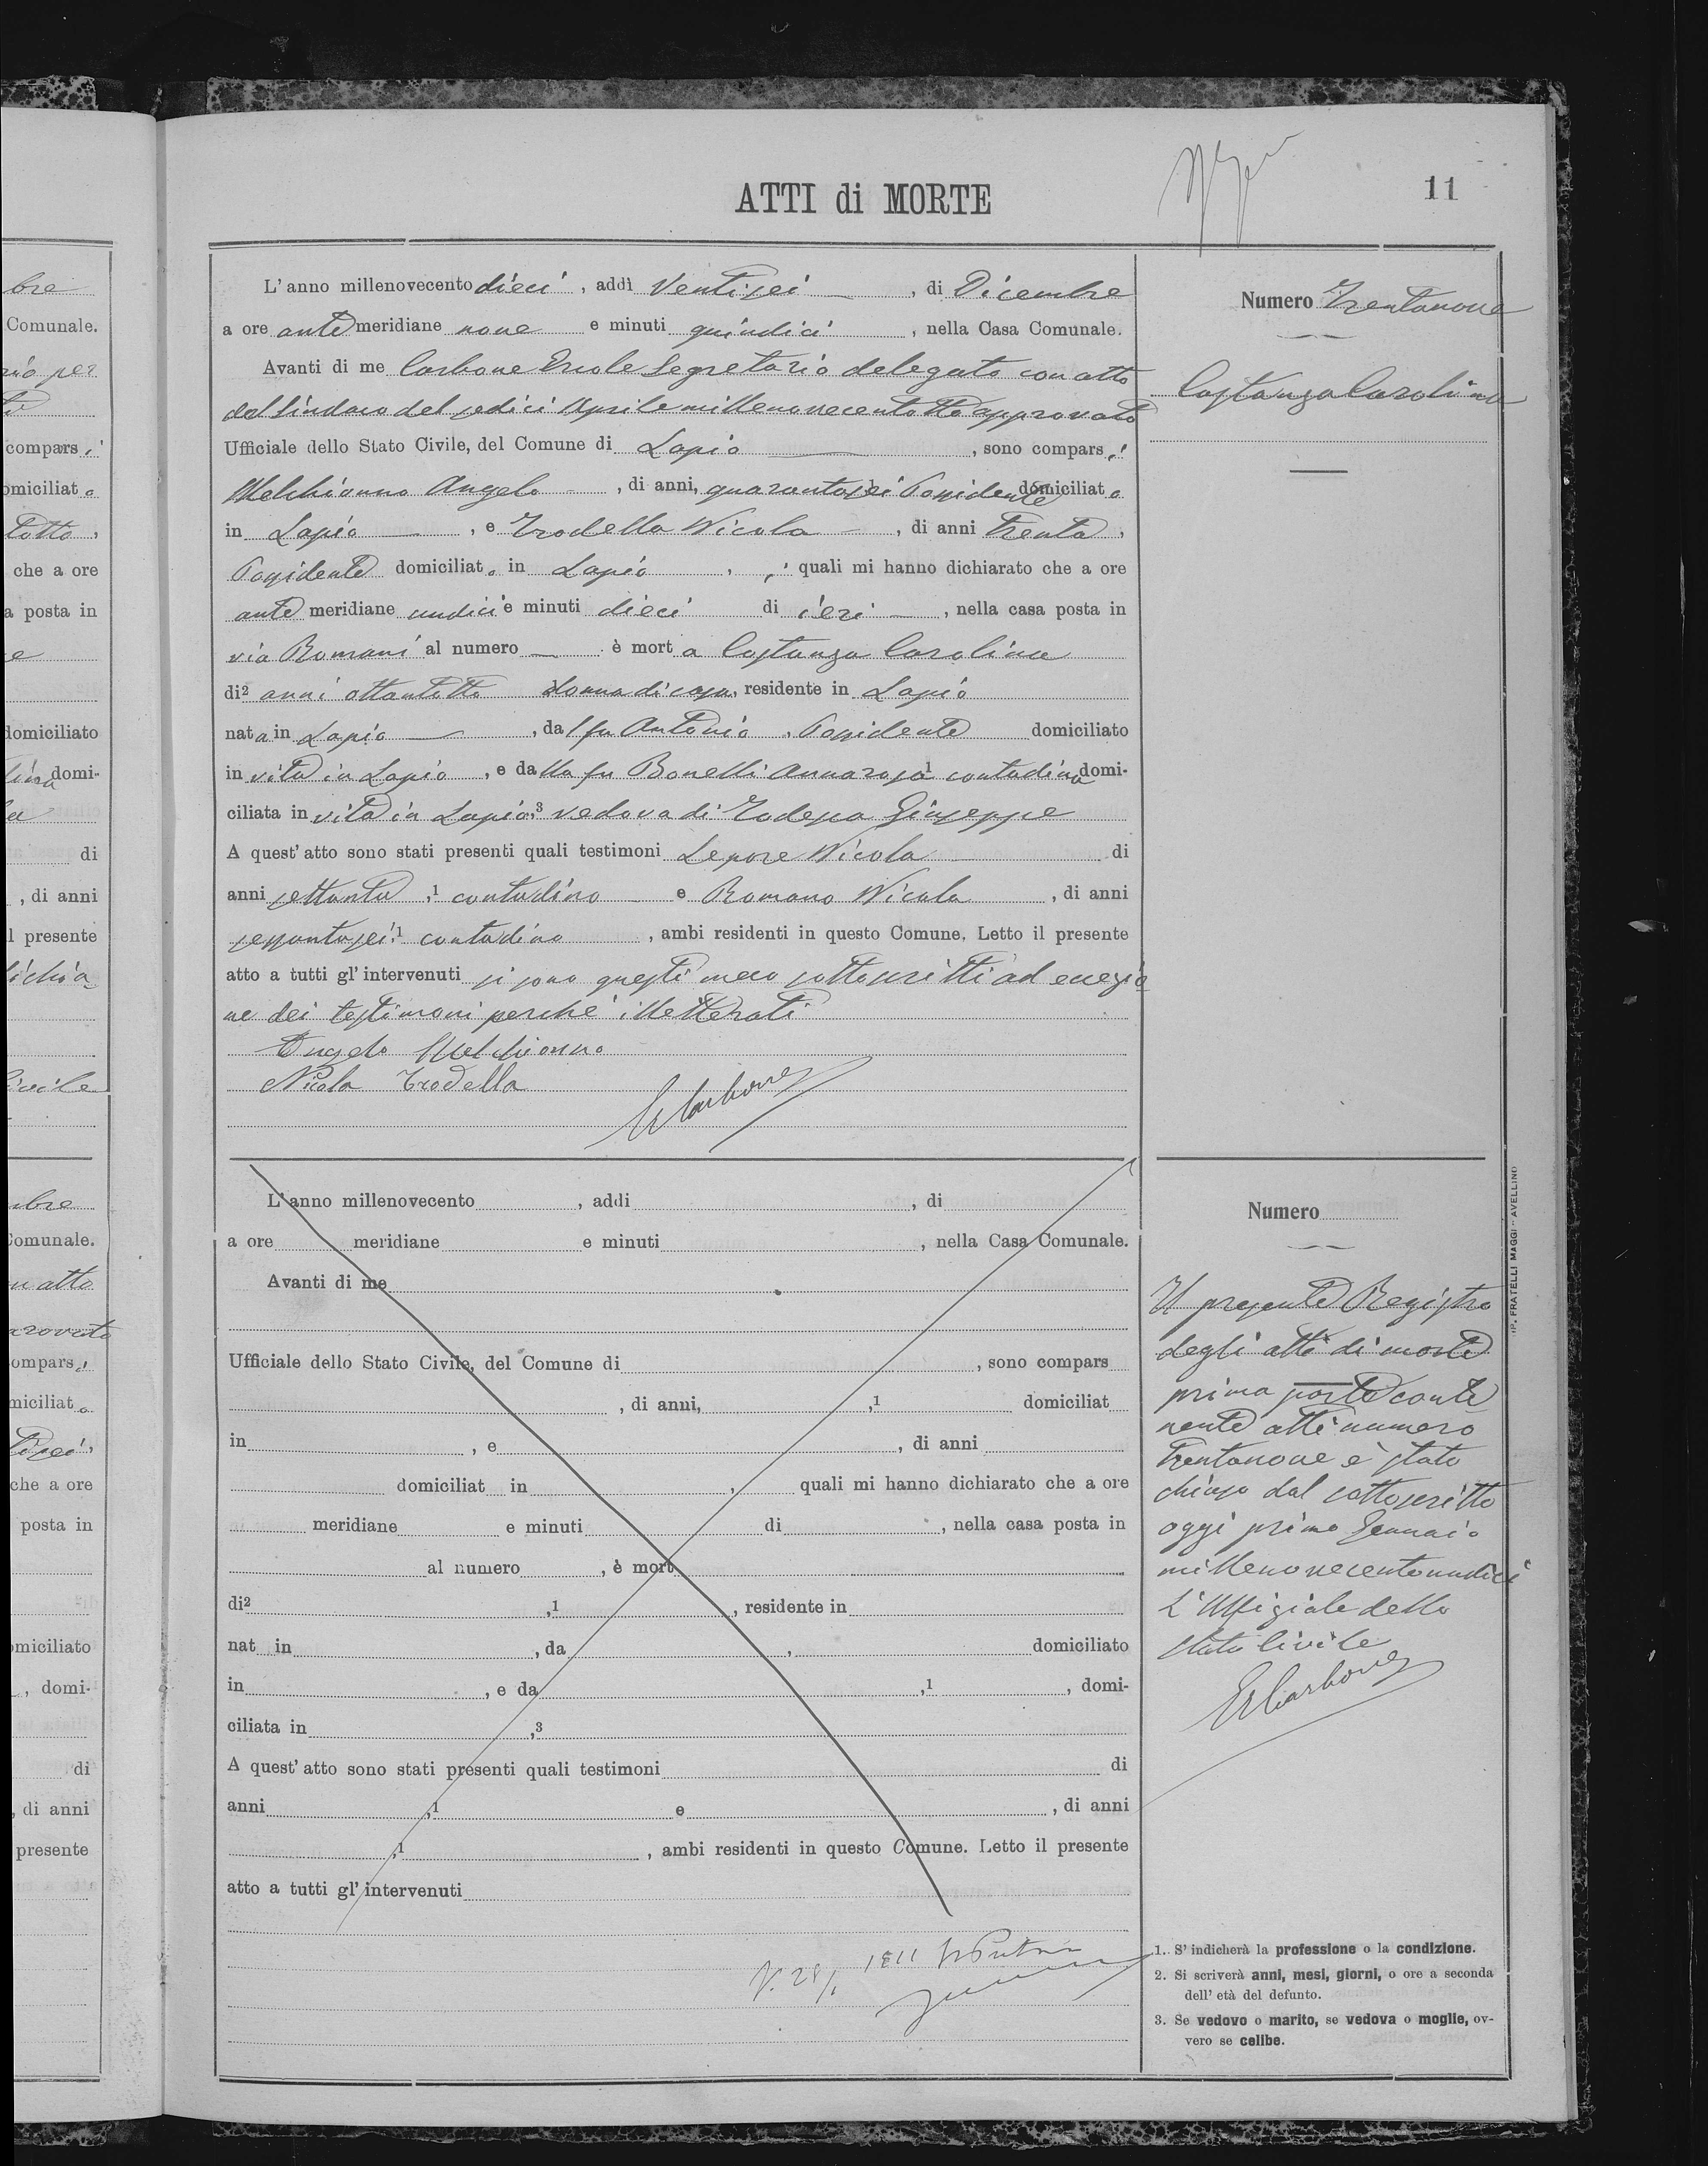 bre
Comunale.
rio per
to
compars i
omiciliat o
totto,
che a ore
a posta in
e
domiciliato
lina domi-
la
di
, di anni
l presente
dichia
Civile
mbre
Comunale.
n atto
provato
ompars i
miciliat o
tisei,
che a ore
posta in
omiciliato
, domi-
di
, di anni
presente
11
ATTI di MORTE
L'anno millenovecento dieci, addì ventisei, di Dicembre
a ore antemeridiane nove e minuti quindici, nella Casa Comunale.
Avanti di me Carbone Ercole Segretario delegato con atto
del Sindaco del sedici Aprile millenovecentotto approvato
Ufficiale dello Stato Civile, del Comune di Lapio, sono compars i
Melchionno Angelo, di anni, quarantasei Possidente domiciliat o
in Lapio, e Trodella Nicola, di anni trenta,
Possidente domiciliat o in Lapio, i quali mi hanno dichiarato che a ore
ante meridiane undici e minuti dieci di ieri, nella casa posta in
via Romani al numero — è mort a Costanza Carolina
di² anni ottantotto donna di casa, residente in Lapio
nata in Lapio, dal fu Antonio, Possidente domiciliato
in vita in Lapio, e dalla fu Bonelli Annarosa¹ contadina domi-
ciliata in vita in Lapio,³ vedova di Todesca Giuseppe
A quest'atto sono stati presenti quali testimoni Lepore Nicola di
anni settanta,¹ contadino e Romano Nicola, di anni
sessantasei,¹ contadino, ambi residenti in questo Comune. Letto il presente
atto a tutti gl'intervenuti si sono questi meco sottoscritti ad eccezio
ne dei testimoni perché illetterati
Angelo Melchionno
Nicola Trodella
ErCarbone
Numero Trentanove
Costanza Carolina
L'anno millenovecento, addì, di
a ore meridiane e minuti, nella Casa Comunale.
Avanti di me
Ufficiale dello Stato Civile, del Comune di, sono compars
, di anni, ,¹ domiciliat
in, e, di anni
domiciliat in, quali mi hanno dichiarato che a ore
meridiane e minuti di, nella casa posta in
al numero, è mort
di² ,¹, residente in
nat in, da, domiciliato
in, e da ,¹, domi-
ciliata in ,³
A quest'atto sono stati presenti quali testimoni di
anni ,¹ e, di anni
,¹, ambi residenti in questo Comune. Letto il presente
atto a tutti gl'intervenuti
V. 28/1 1911
Numero
Il presente Registro
degli atti di morte
prima parte conte
nente atti numero
trentanove è stato
chiuso dal sottoscritto
oggi primo Gennaio
millenovecentoundici
L'Uffiziale dello
Stato Civile
ErCarbone
1. S'indicherà la professione o la condizione.
2. Si scriverà anni, mesi, giorni, o ore a seconda
dell'età del defunto.
3. Se vedovo o marito, se vedova o moglie, ov-
vero se celibe.
TIP. FRATELLI MAGGI - AVELLINO